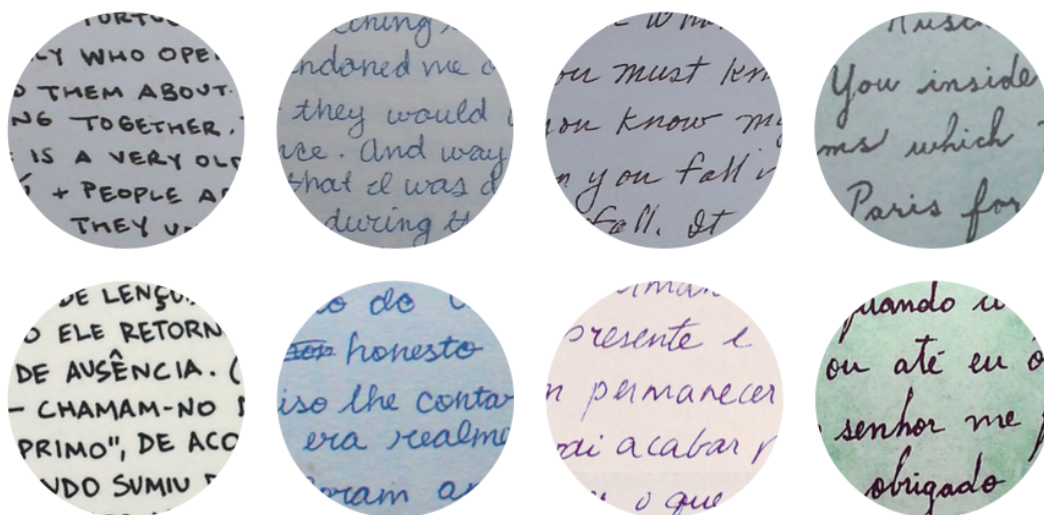 LY WHO OPE
THEM ABOUT.
NG TOGETHER.
IS A VERY OLD
+ PEOPLE A
THEY
ndoned me
they would
nce. And way
that I was d
during th
ou must kn
you know my
n you fall i
fall. It
You inside
ms which
Paris for
DE LENÇO
O ELE RETORN
DE AUSÊNCIA. (
- CHAMAM-NO
PRIMO", DE ACO
NDO SUMIU
do
honesto
iso lhe contar
era realme
oram
presente e
m permanecer
vai acabar p
o que
quando
ou até eu
senhor me
obrigado